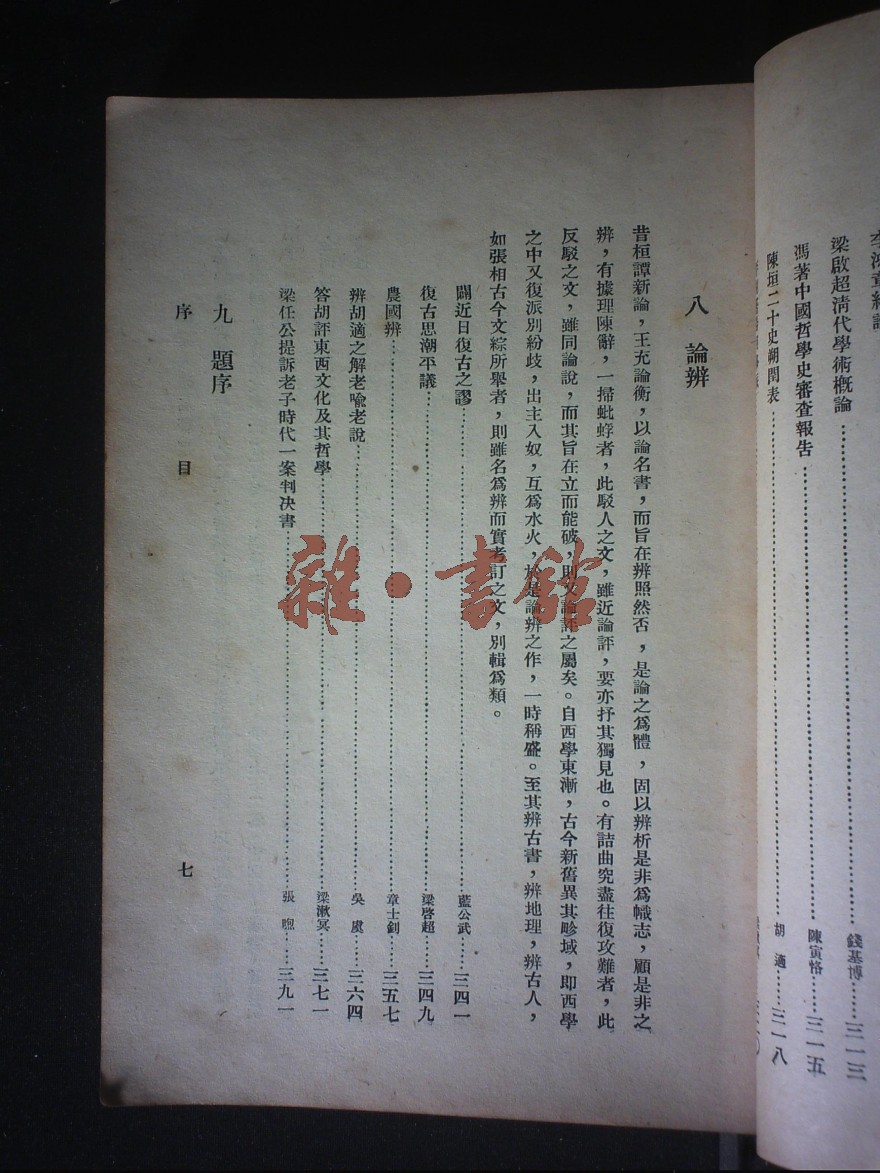 梁啟超淸代學術槪論……錢基博……三一三
馮著中國哲學史審查報告……陳寅恪……三一五
陳垣二十史朔閏表……胡　適……三一八
八　論辨
昔桓譚新論，王充論衡，以論名書，而旨在辨照然否，是論之爲體，固以辨析是非爲幟志，顧是非之
辨，有據理陳辭，一掃蚍蜉者，此駁人之文，雖近論評，要亦抒其獨見也。有詰曲究盡往復攻難者，此
反駁之文，雖同論說，而其旨在立而能破，則又論評之屬矣。自西學東漸，古今新舊異其畛域，即西學
之中又復派別紛歧，出主入奴，互爲水火，於是論辨之作，一時稱盛。至其辨古書，辨地理，辨古人，
如張相古今文綜所舉者，則雖名爲辨而實考訂之文，別輯爲類。
闢近日復古之謬……藍公武……三四一
復古思潮平議……梁啓超……三四九
農國辨……章士釗……三五七
辨胡適之解老喩老說……吳　虞……三六四
答胡評東西文化及其哲學……梁漱冥……三七一
梁任公提訴老子時代一案判決書……張　煦……三九一
九　題序
序　目　七
雜·書館